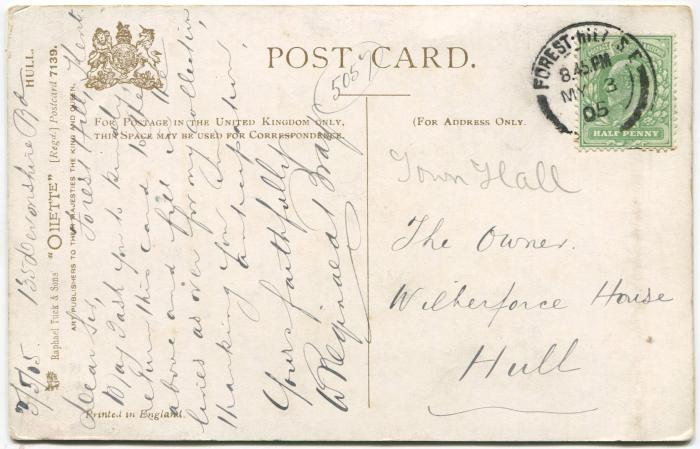 POST CARD.
FOR POSTAGE IN THE UNITED KINGDOM ONLY,
THIS SPACE MAY BE USED FOR CORRESPONDENCE.
(FOR ADDRESS ONLY.
FOREST-HILL S.E
8.45 PM
MY 3
05
HALF PENNY
5057
Town Hall
The Owner.
Wilberforce House
Hull
HULL.
"OILETTE" [Regd.] Postcard 7139.
Raphael Tuck & Sons'
ART PUBLISHERS TO THEIR MAJESTIES THE KING AND QUEEN.
Printed in England.
3/5/05. 135 Devonshire Rd
Forest Hill, Kent.
Dear Sir,
May I ask you to kindly
return this card to the
above and fill in the
lines as over for my collection,
thanking you in
Yours faithfully
W Reginald Bray